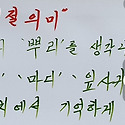 절의미"
'뿌리'를 생각
'마디' 앞사
에서 기억하게